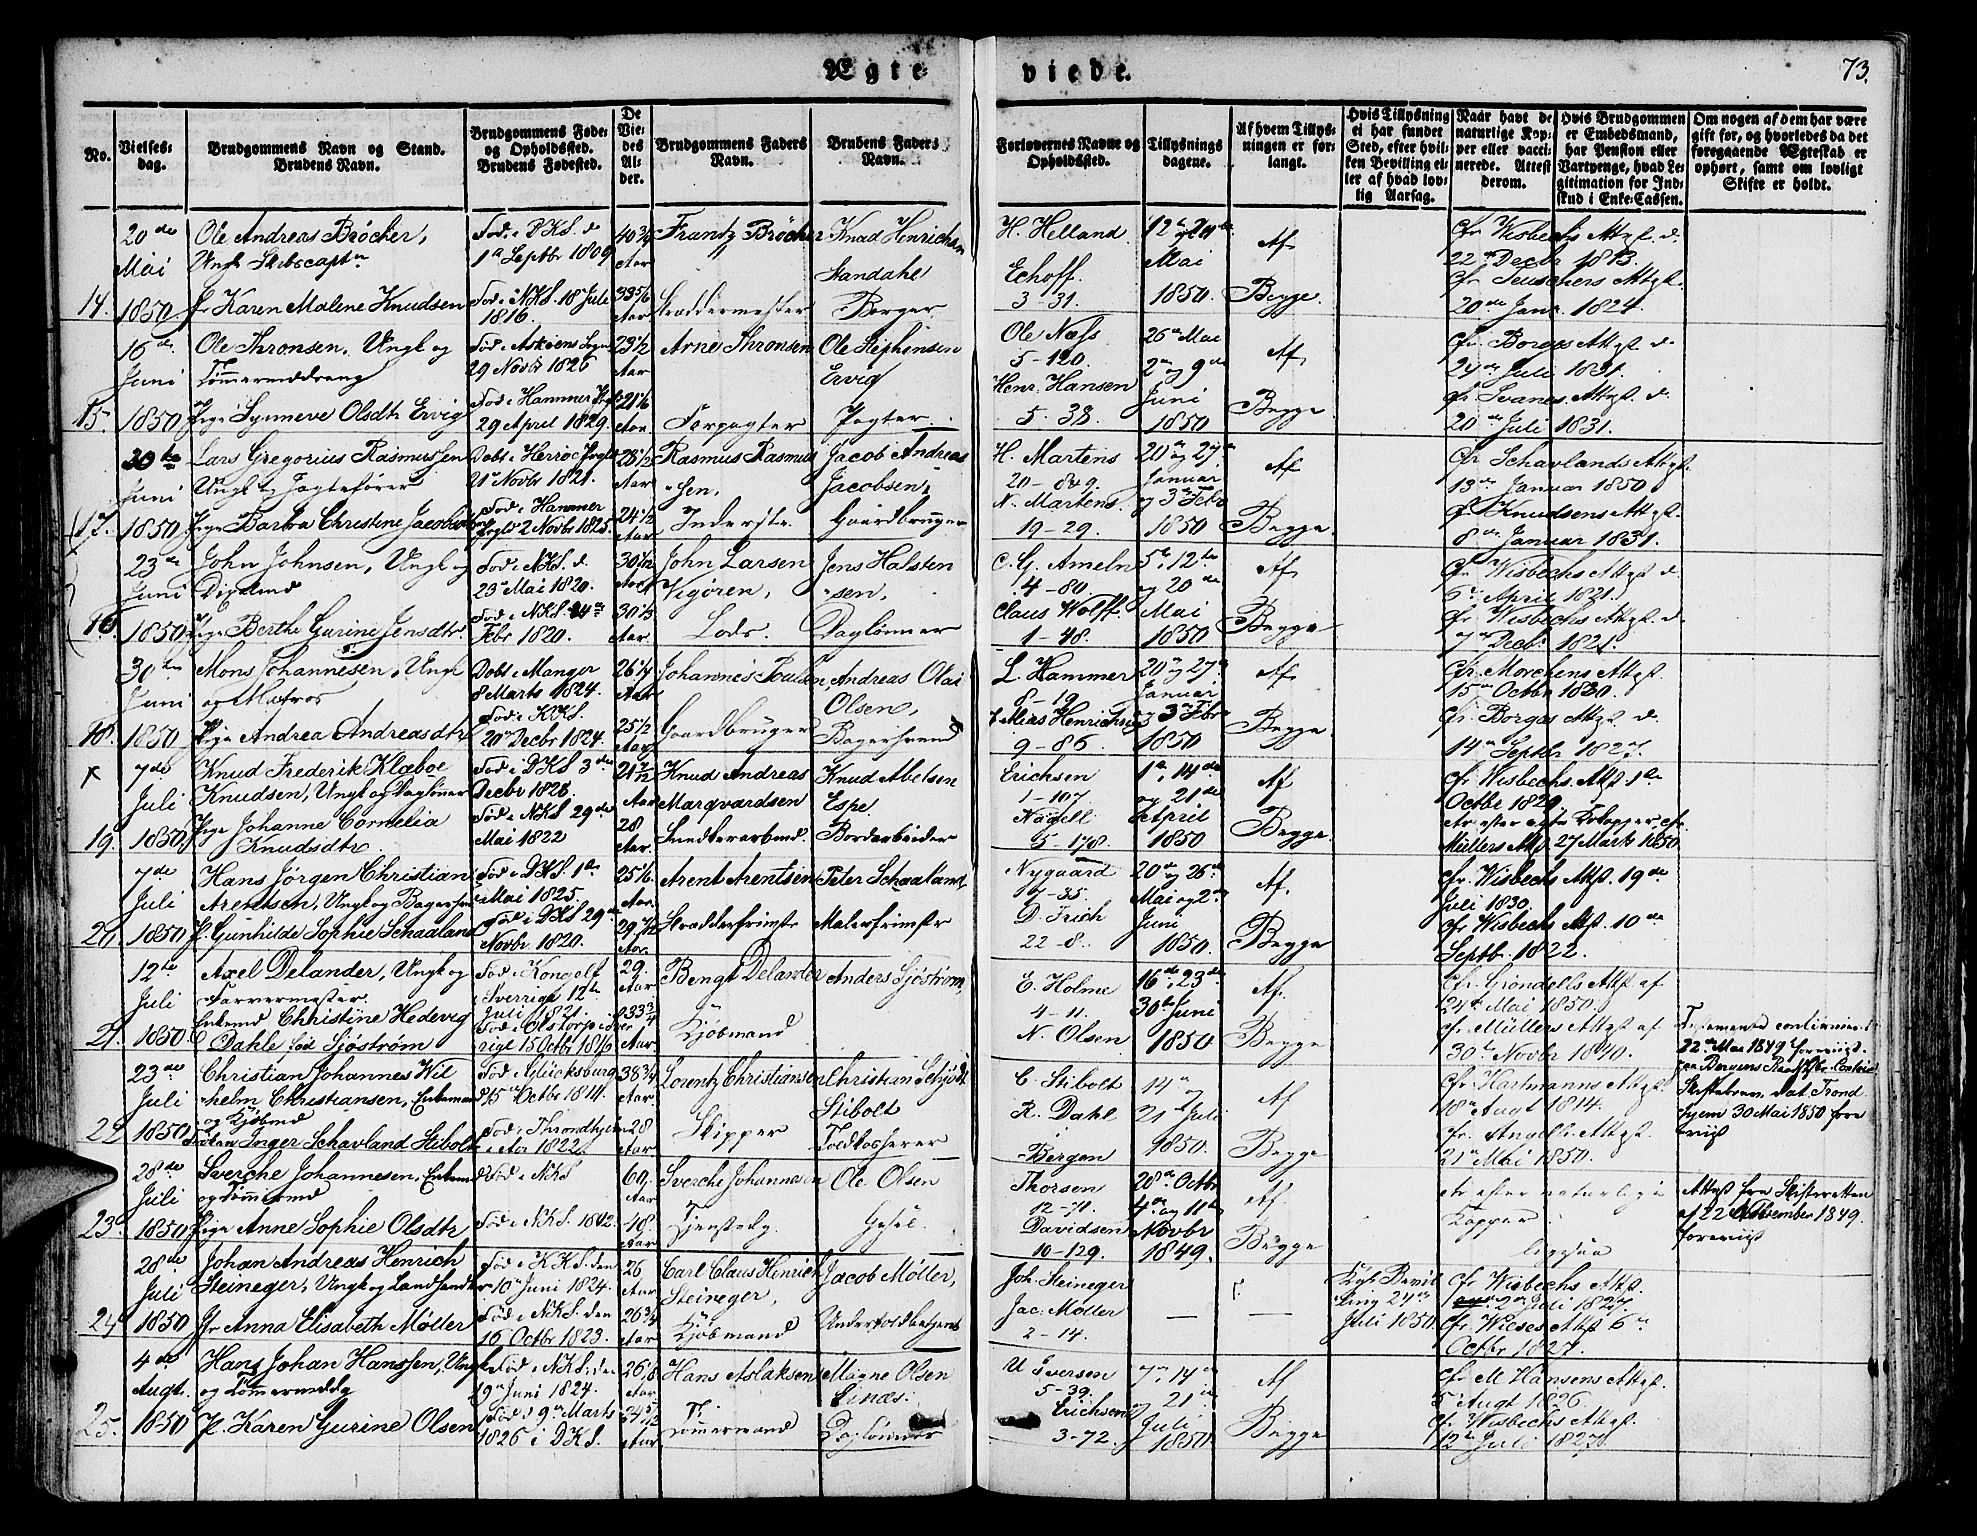 Ægteviede.
73.
No.
Vielsesdag.
Brudgommens Navn og Stand.
Brudens Navn.
Brudgommens Føde- og Opholdssted.
Brudens Fødested.
De Viedes Alder.
Brudgommens Faders Navn.
Brudens Faders Navn.
Forlovernes Navne og Opholdssted.
Tillysningsdagene.
Af hvem Tillysningen er forlangt.
Hvis Tillysning ei har fundet Sted, efter hvilken Bevilling eller af hvad lovlig Aarsag.
Naar havt de naturlige Kopper eller vaccinerede. Attest derom.
Hvis Brudgommen er Embedsmand, har Pension eller Vartpenge, hvad Legitimation for Indskud i Enke-Cassen.
Om nogen af dem har være gift før, og hvorledes da det foregaaende Ægteskab er ophørt, samt om lovligt Skifte er holdt.
14. 20de Mai 1850
Ole Andreas Brøcher, Ungk Skibscaptn
Jfr Karen Malene Knudsen
Fød i DKS. d 1ste Septbr 1809
Fød i NKS. 18 Juli 1816.
40 3/4 Aar
33 5/6 Aar
Frantz Brøcher
Skræddermester
Knud Henrichsen Sandahl
Borger
H. Helland
Echoff.
3-31.
Mai 1850.
Af
Begge.
Cfr Wisbechs Attst. d. 22 Decbr 1813.
Cfr Teuschers Attst. 20de Janr. 1824.
15. 16de Juni 1850
Ole Thronsen, Ungk og Tømmermddreng
Pige Synneve Olsdtr Ervig
Fød i Askøens Sogn 29 Novbr 1826
Fød i Hammer 29 April 1829.
23 1/2 Aar
21 1/6 Aar
Arne Thronsen
Forpagter
Ole Stephensen Ervig
Pagter.
Ole Næss
5-120.
Henr. Hansen
5-38.
26de Mai
2den og 9de Juni 1850
Af
Begge
Cfr. Borges Attst. d. 24de Juli 1831.
Cfr Svanes Attst. d. 20de Juli 1831.
17. 30te Juni 1850
Lars Gregorius Rasmussen Ungk og Jagtefører
Pige Barbra Christine Jacobsdtr
Døbt i Herrøe 21de Novbr 1821.
Fød i Hammer 2 Novbr 1825.
28 1/2 Aar
24 1/2 Aar
Rasmus Rasmussen,
Inderste.
Jacob Andreas Jacobsen,
Gaardbruger
H. Martens
N. Martens
19-29.
20de og 27de Januar og 3die Febr 1850
Af
Begge
Cfr Schavlands Attst. 13de Januar 1850
Cfr. Knudsens Attst. 8de Januar 1831.
16. 23de Juni 1850
John Johnsen, Ungk og
Pige Berthe Gurine Jensdtr.
Fød i NKS. d 23de Mai 1820.
Fød i NKS. Febr 1820.
30 1/12 Aar
30 1/3 Aar.
John Larsen Vigøren,
Lods.
Jens Halstensen,
Daglønner
C. G. Ameln
4-80.
Claus Wolff.
1-48.
5te, 12te og 20de Mai 1850
Af
Begge
Cfr. Wisbechs Attst. d. 6te April 1821.
Cfr Wisbechs Attst. d. 7de Decbr 1821.
18. 30te Juni 1850
Mons Johannesen, Ungk og Matros
Pige Andrea Andreasdtr
Døbt i Manger 8 Marts 1824.
Fød i KKS. 20de Decbr 1824.
26 1/4 Aar
25 1/2 Aar
Johannes
Gaardbruger
Andreas Olai Olsen,
Bagersvend
L. Hammer
8-19.
Mias Henrichsen
9-86.
20de og 27de Januar og 3die Febr 1850
Af
Begge
Cfr. Morchens Attst. 15de Octbr 1820.
Cfr. Borges Attst. d. 14de Septbr 1827.
19. 7de Juli 1850
Knud Frederik Klæboe Knudsen, Ungk og Dagløner
Pige Johanne Cornelia Knudsdtr.
Fød i DKS 3de Decbr 1828.
Fød i NKS. 29de Mai 1822
21 7/12 Aar
28 Aar.
Knud Andreas Marqvardsen
Knud Abelsen Espe.
Bordarbeider
Erichsen
1-107
Nagell
5-178.
1ste, 14de og 21de April 1850
Af
Begge
Cfr. Wisbechs Attst 1ste Octbr 1829
Müllers Attst 27 Marts 1850.
20. 7de Juli 1850
Hans Jørgen Christian Arentsen, Ungk og
P. Gunhilde Sophie Schaaland
Fød i DKS. 1ste Mai 1825.
Fød i DKS 29de Novbr 1820.
25 1/6. Aar.
29 7/12 Aar.
Arent Arentsen
Skrædderfrimstr
Peter Schaaland,
Malerfrimster
Nygaard
7-35.
D. Frich
22-8.
20de og 26de Mai og 2den Juni 1850.
Af.
Begge
Cfr. Wisbechs Attst. 19de Juli 1830.
Cfr Wisbechs Attst. 10de Septb. 1822.
21. 12te Juli 1850
Axel Delander, Ungk og Farvermester.
Enkemd Christine Hedevig Dahle født Sjöström
Fød i Kongelf Sverrige 12te Juli 1821.
Fød i Olstorp i Sverrige 15 Octbr 1816
29. Aar
33 3/4 Aar
Bengt Delander
Kjøbmand
Anders Sjöström,
E. Holme
4-11.
N. Olsen
16de, 23de
30te Juni 1850
Af.
Begge
Cfr. Grøndells Attst af 24de Mai 1850.
Cfr. Müllers Attst af. 30te Novbr 1840.
22. 23de Juli 1850
Christian Johannes Wilhelm Christiansen, Enkemand og Kjøbmd
Frøken Inger Schavland Stibolt
Fød i Glücksburg 15de Octbr 1811.
Fød i Throndhjem i Aar 1822
38 3/4 Aar
28 Aar
Lorentz Christiansen
Skipper
Christian Schjødt Stibolt
Toldkasserer
C. Stibolt
R. Dahl.
Bergen
14de 21 Juli 1850.
Af
Begge
Cfr. Hartmanns Attst 18de Augt 1814.
Cfr. Angells Attst. 21de Mai 1850.
Skiftebrev, Dat. Trondhjem 30 Mai 1850 foreviist
23. 28de Juli 1850
Sverche Johannesen, Enkemd og Tømmermd
Pige Anne Sophie Olsdtr
Fød i NKS
Fød i NKS. 1802.
60. Aar
48. Aar
Sverche Johannesen
Tjenstekg.
Ole Olsen
Gesel.
Thorsen
12-71.
Davidsen
10-129.
28de Octbr
4de og 11te Novbr 1849.
Af.
Begge
Ar efter naturlige Kopper.
Attest fra Skifteretten af 22 November 1849. foreviist
24. 28de Juli 1850
Johan Andreas Henrich Steineger, Ungk og
Jfr Anna Elisabeth Møller
Fød i KKS. den 10de Juni 1824.
Fød i NKS. den 16 Octbr 1823.
26 Aar
26 3/4 Aar
Carl Claus Henrich Steineger,
Kjøbmand
Jacob Møller,
Undertoldbetjent
Joh. Steineger
Jac: Møller
2-14.
Kgl. Bevilling 24de Juli 1850.
Cfr Wisbechs Attst. 2den Juli 1827.
Cfr. Wieses Attst 6te Octbr 1827.
25. 4de Augt. 1850
Hans Johan Hanssen, Ungk og Tømermddg
P. Karen Gurine Olsen
Fød i NKS. den 19de Juni 1824.
Fød d 9de Marts 1826 i DKS.
26 1/8 Aar
24 5/12 Aar
Hans Aslaksen
Tømermand
Magne Olsen Einæs.
Daglønner
U. Iversen
5-39.
Erichsen
3-72.
7de, 14de og 21de Juli 1850
Af
Begge
Cfr. M. Hansens Attst. 5te Augt 1826.
Cfr Wisbechs Attst. 12te Juli 1827.